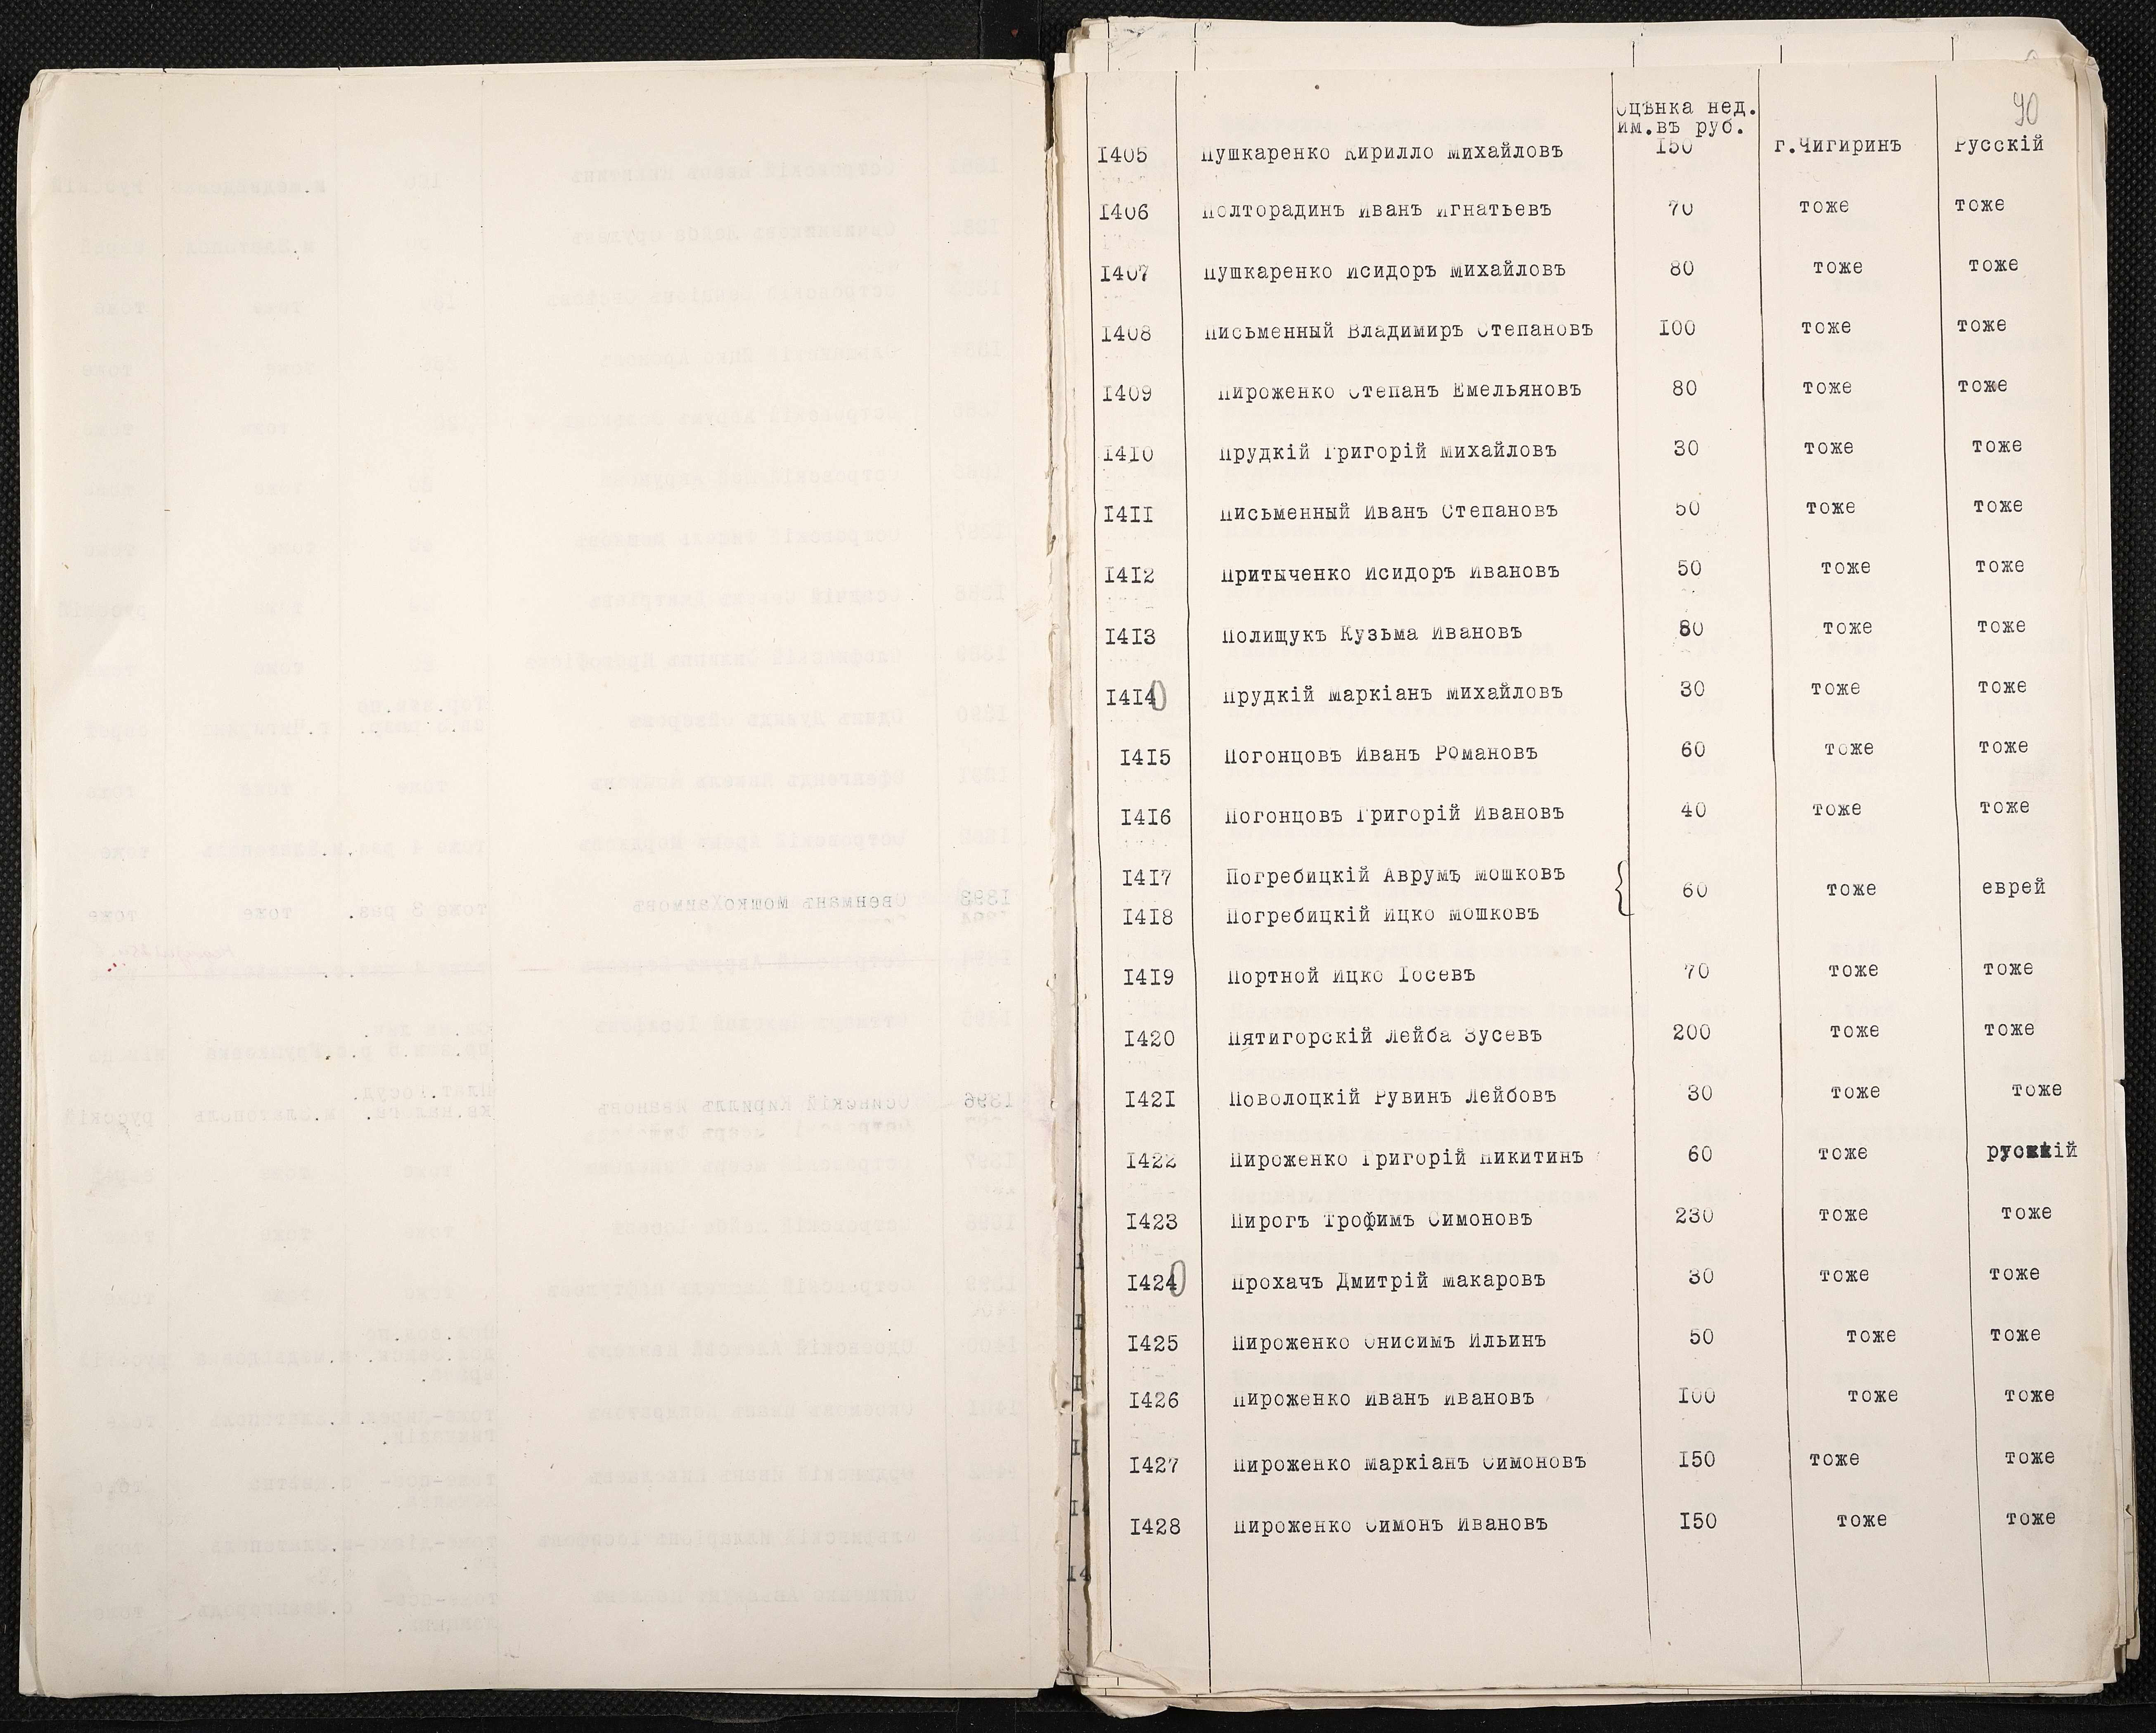 90
Оцѣнка нед.
им.въ руб.
1405 Пушкаренко Кирилло Михайловъ 150 г.Чигиринъ Русскій
1406 Полторадинъ Иванъ Игнатьевъ 70 тоже тоже
1407 Пушкаренко Исидоръ Михайловъ 80 тоже тоже
1408 Письменный Владимиръ Степановъ 100 тоже тоже
1409 Пироженко Степанъ Емельяновъ 80 тоже тоже
1410 Прудкій Григорій Михайловъ 30 тоже тоже
1411 Письменный Иванъ Степановъ 50 тоже тоже
1412 Притыченко Исидоръ Ивановъ 50 тоже тоже
1413 Полищукъ Кузьма Ивановъ 80 тоже тоже
1414 Прудкій Маркіанъ Михайловъ 30 тоже тоже
1415 Погонцовъ Иванъ Романовъ 60 тоже тоже
1416 Погонцовъ Григорій Ивановъ 40 тоже тоже
1417 Погребицкій Аврумъ Мошковъ
60 тоже еврей
1418 Погребицкій Ицко Мошковъ
1419 Портной Ицко Іосевъ 70 тоже тоже
1420 Пятигорскій Лейба Зусевъ 200 тоже тоже
1421 Поволоцкій Рувинъ Лейбовъ 30 тоже тоже
1422 Пироженко Григорій Никитинъ 60 тоже русскій
1423 Пирогъ Трофимъ Симоновъ 230 тоже тоже
1424 Прохачъ Дмитрій Макаровъ 30 тоже тоже
1425 Пироженко Онисимъ Ильинъ 50 тоже тоже
1426 Пироженко Иванъ Ивановъ 100 тоже тоже
1427 Пироженко Маркіанъ Симоновъ 150 тоже тоже
1428 Пироженко Симонъ Ивановъ 150 тоже тоже